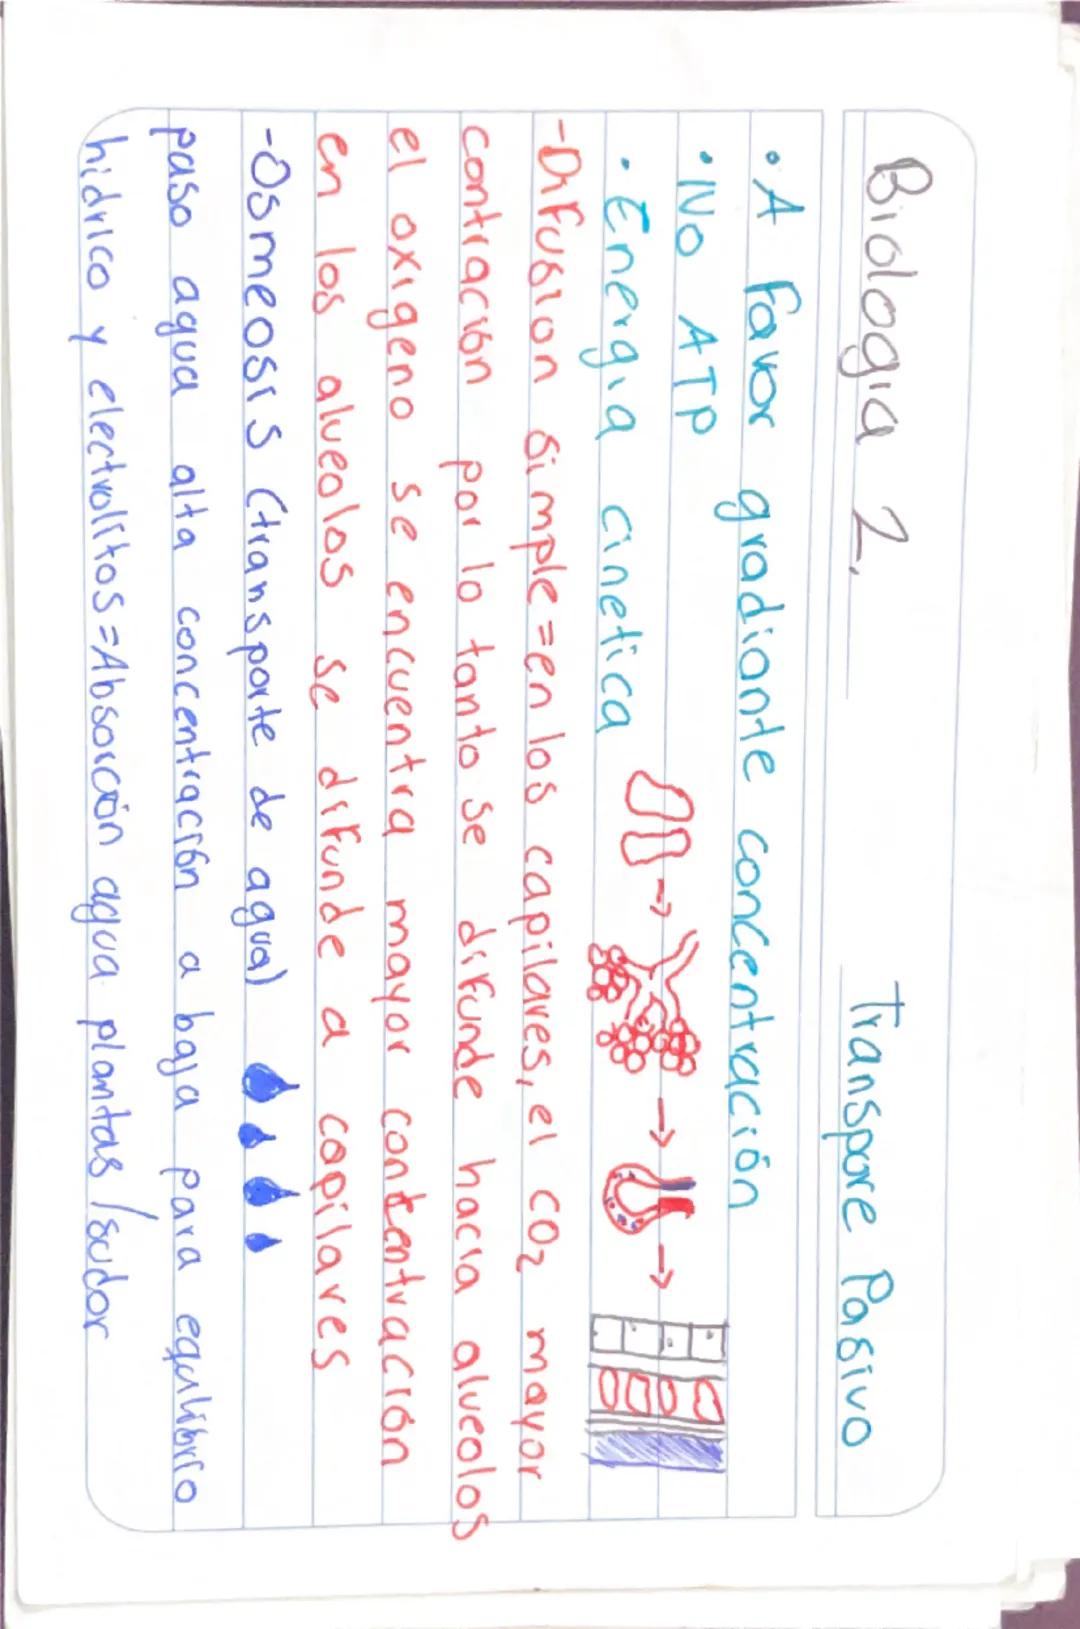 Biologia 2.
Transpore Pasivo
• A favor gradiante concentración
• No ATP
• Energia cinetica
-Difusion simple=en los capilares, el CO2 mayor
contración por lo tanto se difunde hacia alveolos
el oxigeno se encuentra mayor contentración
en los alveolos se difunde a capilares
-Osmeosis (transporte de agua)
paso agua alta concentración a baja para equlibrio
hidrico y electrolitos=Absorción agua plantas/sudor